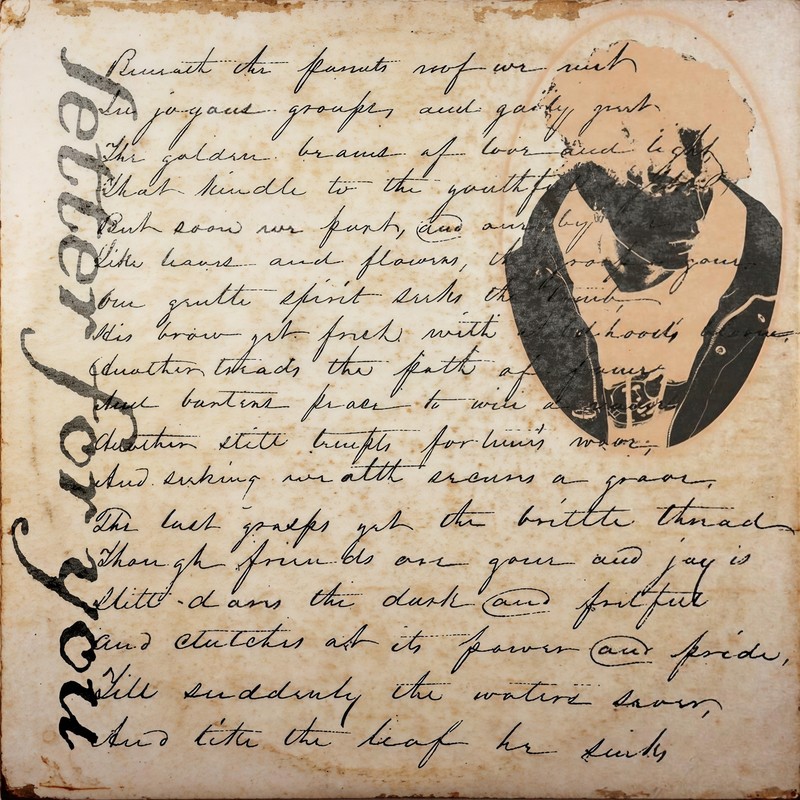 letter for you
Beneath the parents roof we meet
In joyous groups, and gaily greet
The golden beams of love and light,
That kindle to the youthful
But soon we part, and one by
Like leaves and flowers,
One gentle spirit seeks the tomb
His brow yet fresh with childhood's bloom,
Another treads the path of fame
And barters peace to win a name;
Another still tempts fortune's wave,
And seeking wealth secures a grave,
The last grasps yet the brittle thread
Though friends are gone and joy is
Still dares the dark and fretful
and clutches at its power and pride,
Till suddenly the waters sever,
And like the leaf he sinks